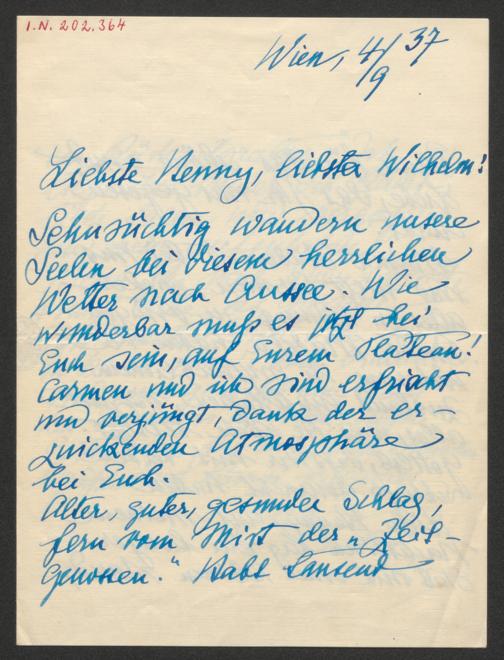 I.N. 202.364
Wien, 4/9 37
Liebste Henny, liebster Wilhelm!
Sehnsüchtig wandern unsere
Seelen bei diesem herrlichen
Wetter nach Aussee. Wie
wunderbar muß es jetzt bei
Euch sein, auf Eurem Plateau!
Carmen und ich sind erfrischt
und verjüngt, dank der er-
quickenden Atmosphäre
bei Euch.
Alter, guter, gesunder Schlag,
fern vom Mist der „Zeit-
genossen." Habt tausend